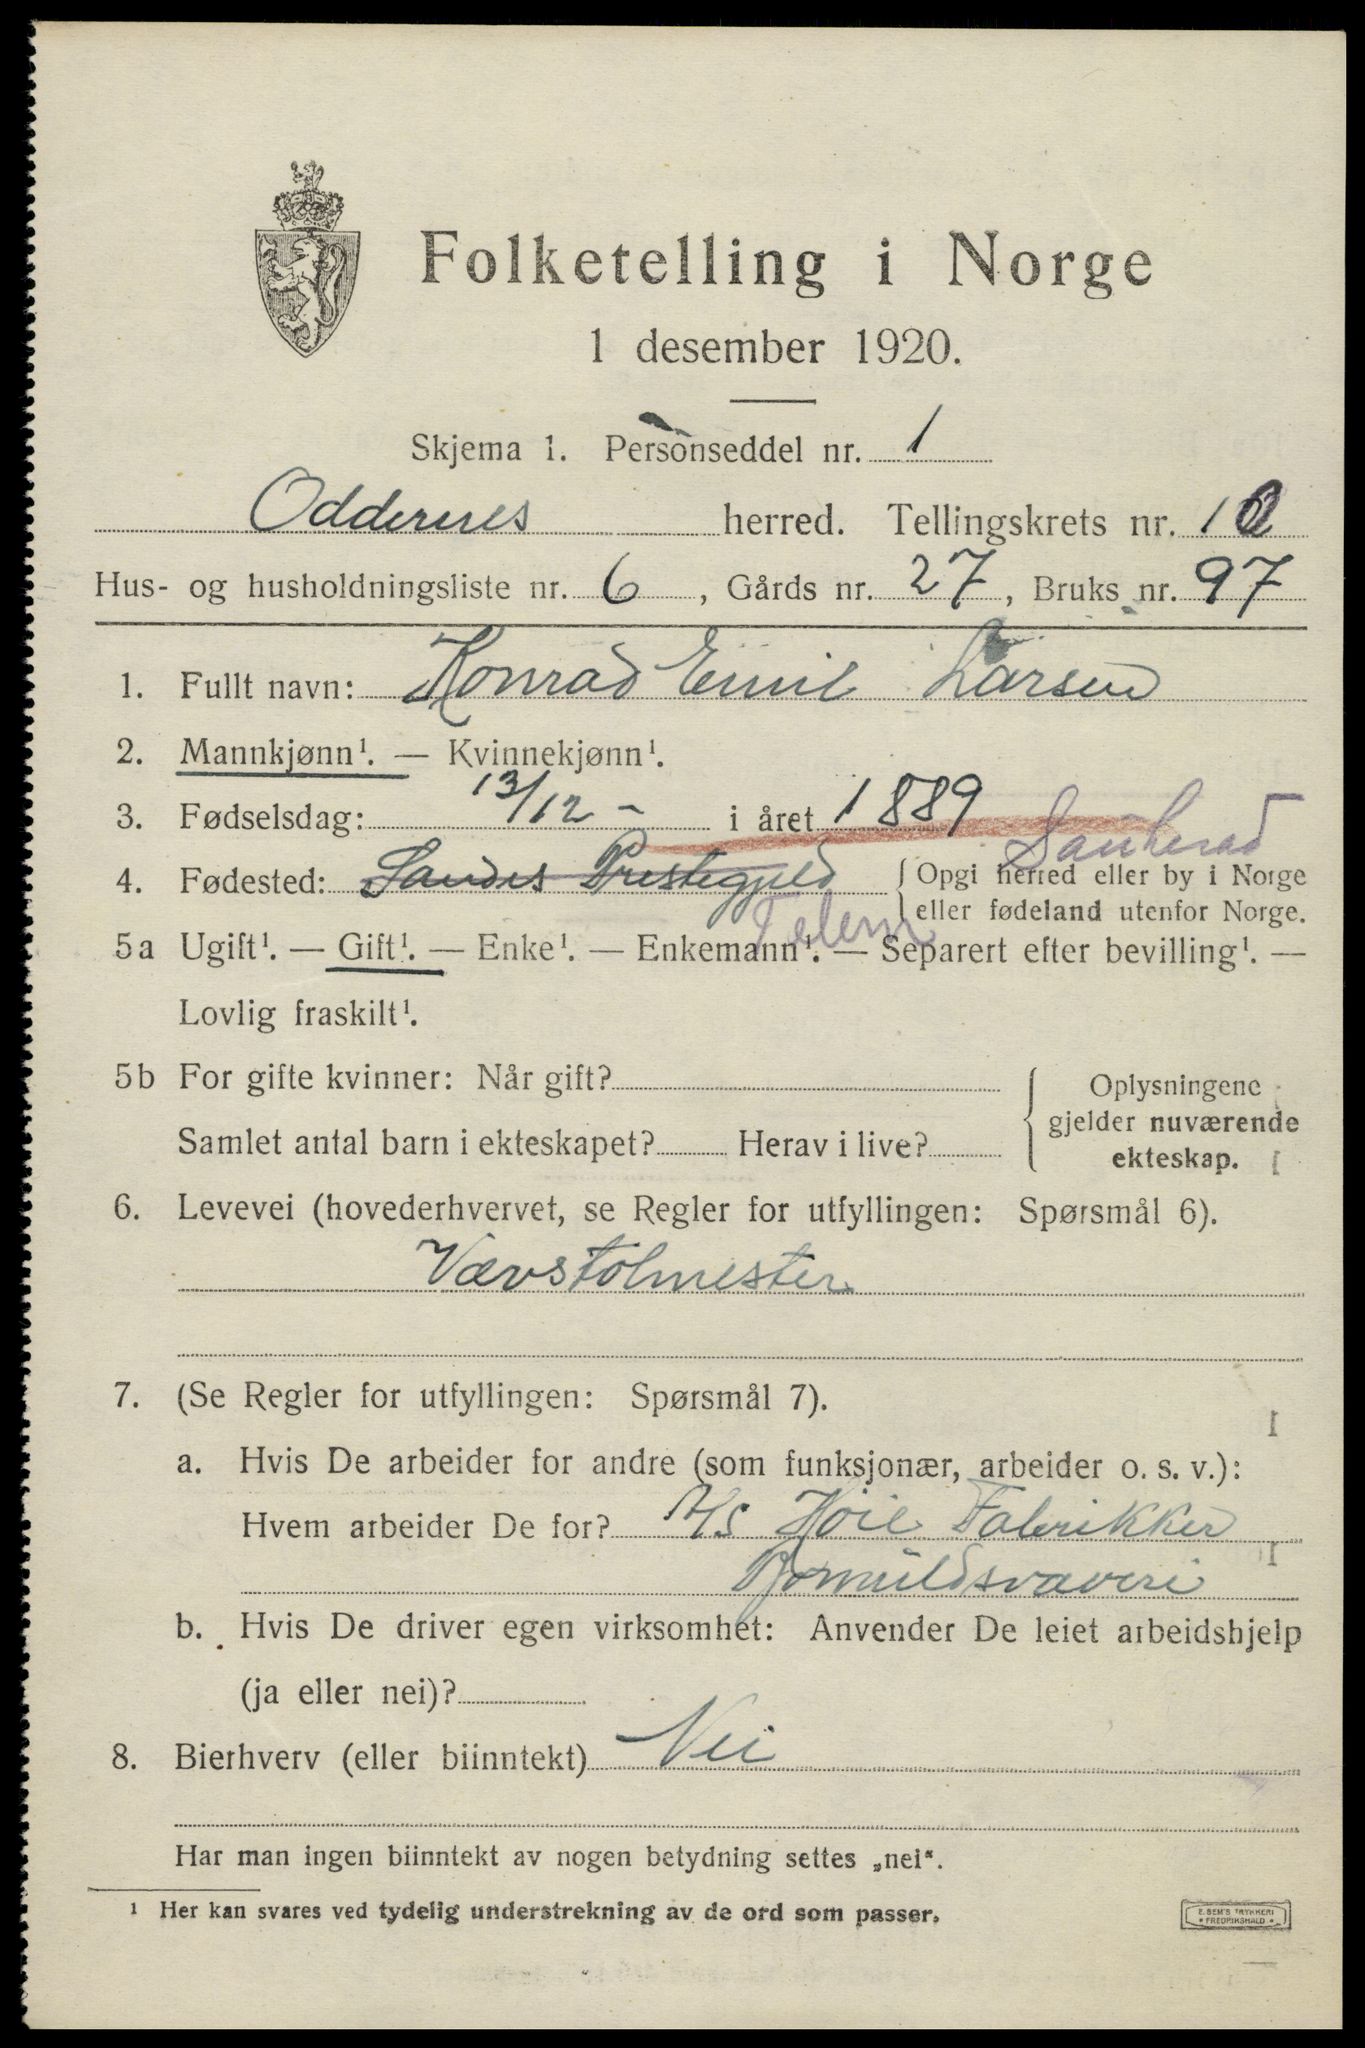 Folketelling i Norge
1 desember 1920.
Skjema 1. Personseddel nr. 1
Oddernes herred. Tellingskrets nr. 10
Hus- og husholdningsliste nr. 6, Gårds nr. 27, Bruks nr. 97
1. Fullt navn: Konrad Emil Larsen
2. Mannkjønn¹. — Kvinnekjønn¹.
3. Fødselsdag: 13/12 - i året 1889
Sauherad
4. Fødested: Sandes Prestegjeld { Opgi herred eller by i Norge
eller fødeland utenfor Norge.
Telem
5a Ugift¹. — Gift¹. — Enke¹. — Enkemann¹. — Separert efter bevilling¹. —
Lovlig fraskilt¹.
5b For gifte kvinner: Når gift? { Oplysningene
gjelder nuværende
Samlet antal barn i ekteskapet? Herav i live? ekteskap.
6. Levevei (hovederhvervet, se Regler for utfyllingen: Spørsmål 6).
Vævstolmester
7. (Se Regler for utfyllingen: Spørsmål 7).
a. Hvis De arbeider for andre (som funksjonær, arbeider o. s. v.):
Hvem arbeider De for? A/S Høie Fabrikker
b. Hvis De driver egen virksomhet: Anvender De leiet arbeidshjelp
(ja eller nei)?
8. Bierhverv (eller biinntekt) Nei
Har man ingen biinntekt av nogen betydning settes „nei“.
¹ Her kan svares ved tydelig understrekning av de ord som passer.
E. SEM'S TRYKKERI
FREDRIKSHALD